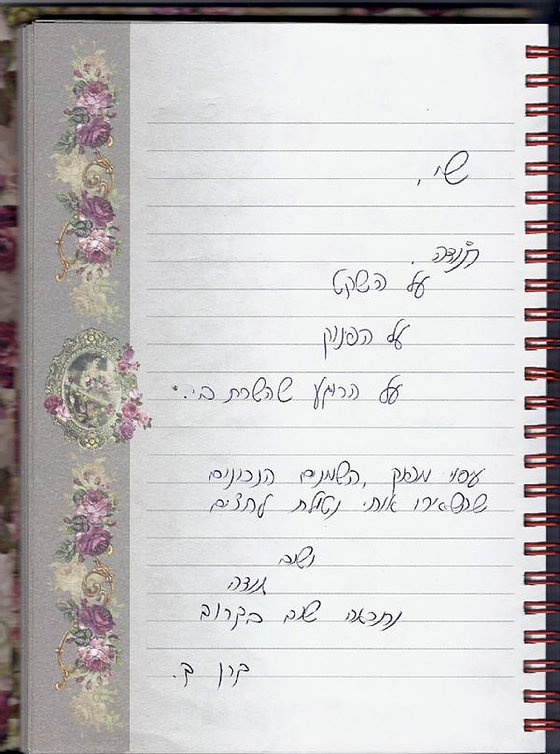 שי,
תודה.
על השקט
על הפנוק
על הרוגע שהשרת בי..
עסוי מפנק, השמנים הנכונים
שהשאירו אותי נטולת לחצים
ושוב
תודה
נתראה שוב בקרוב
קרן ק.